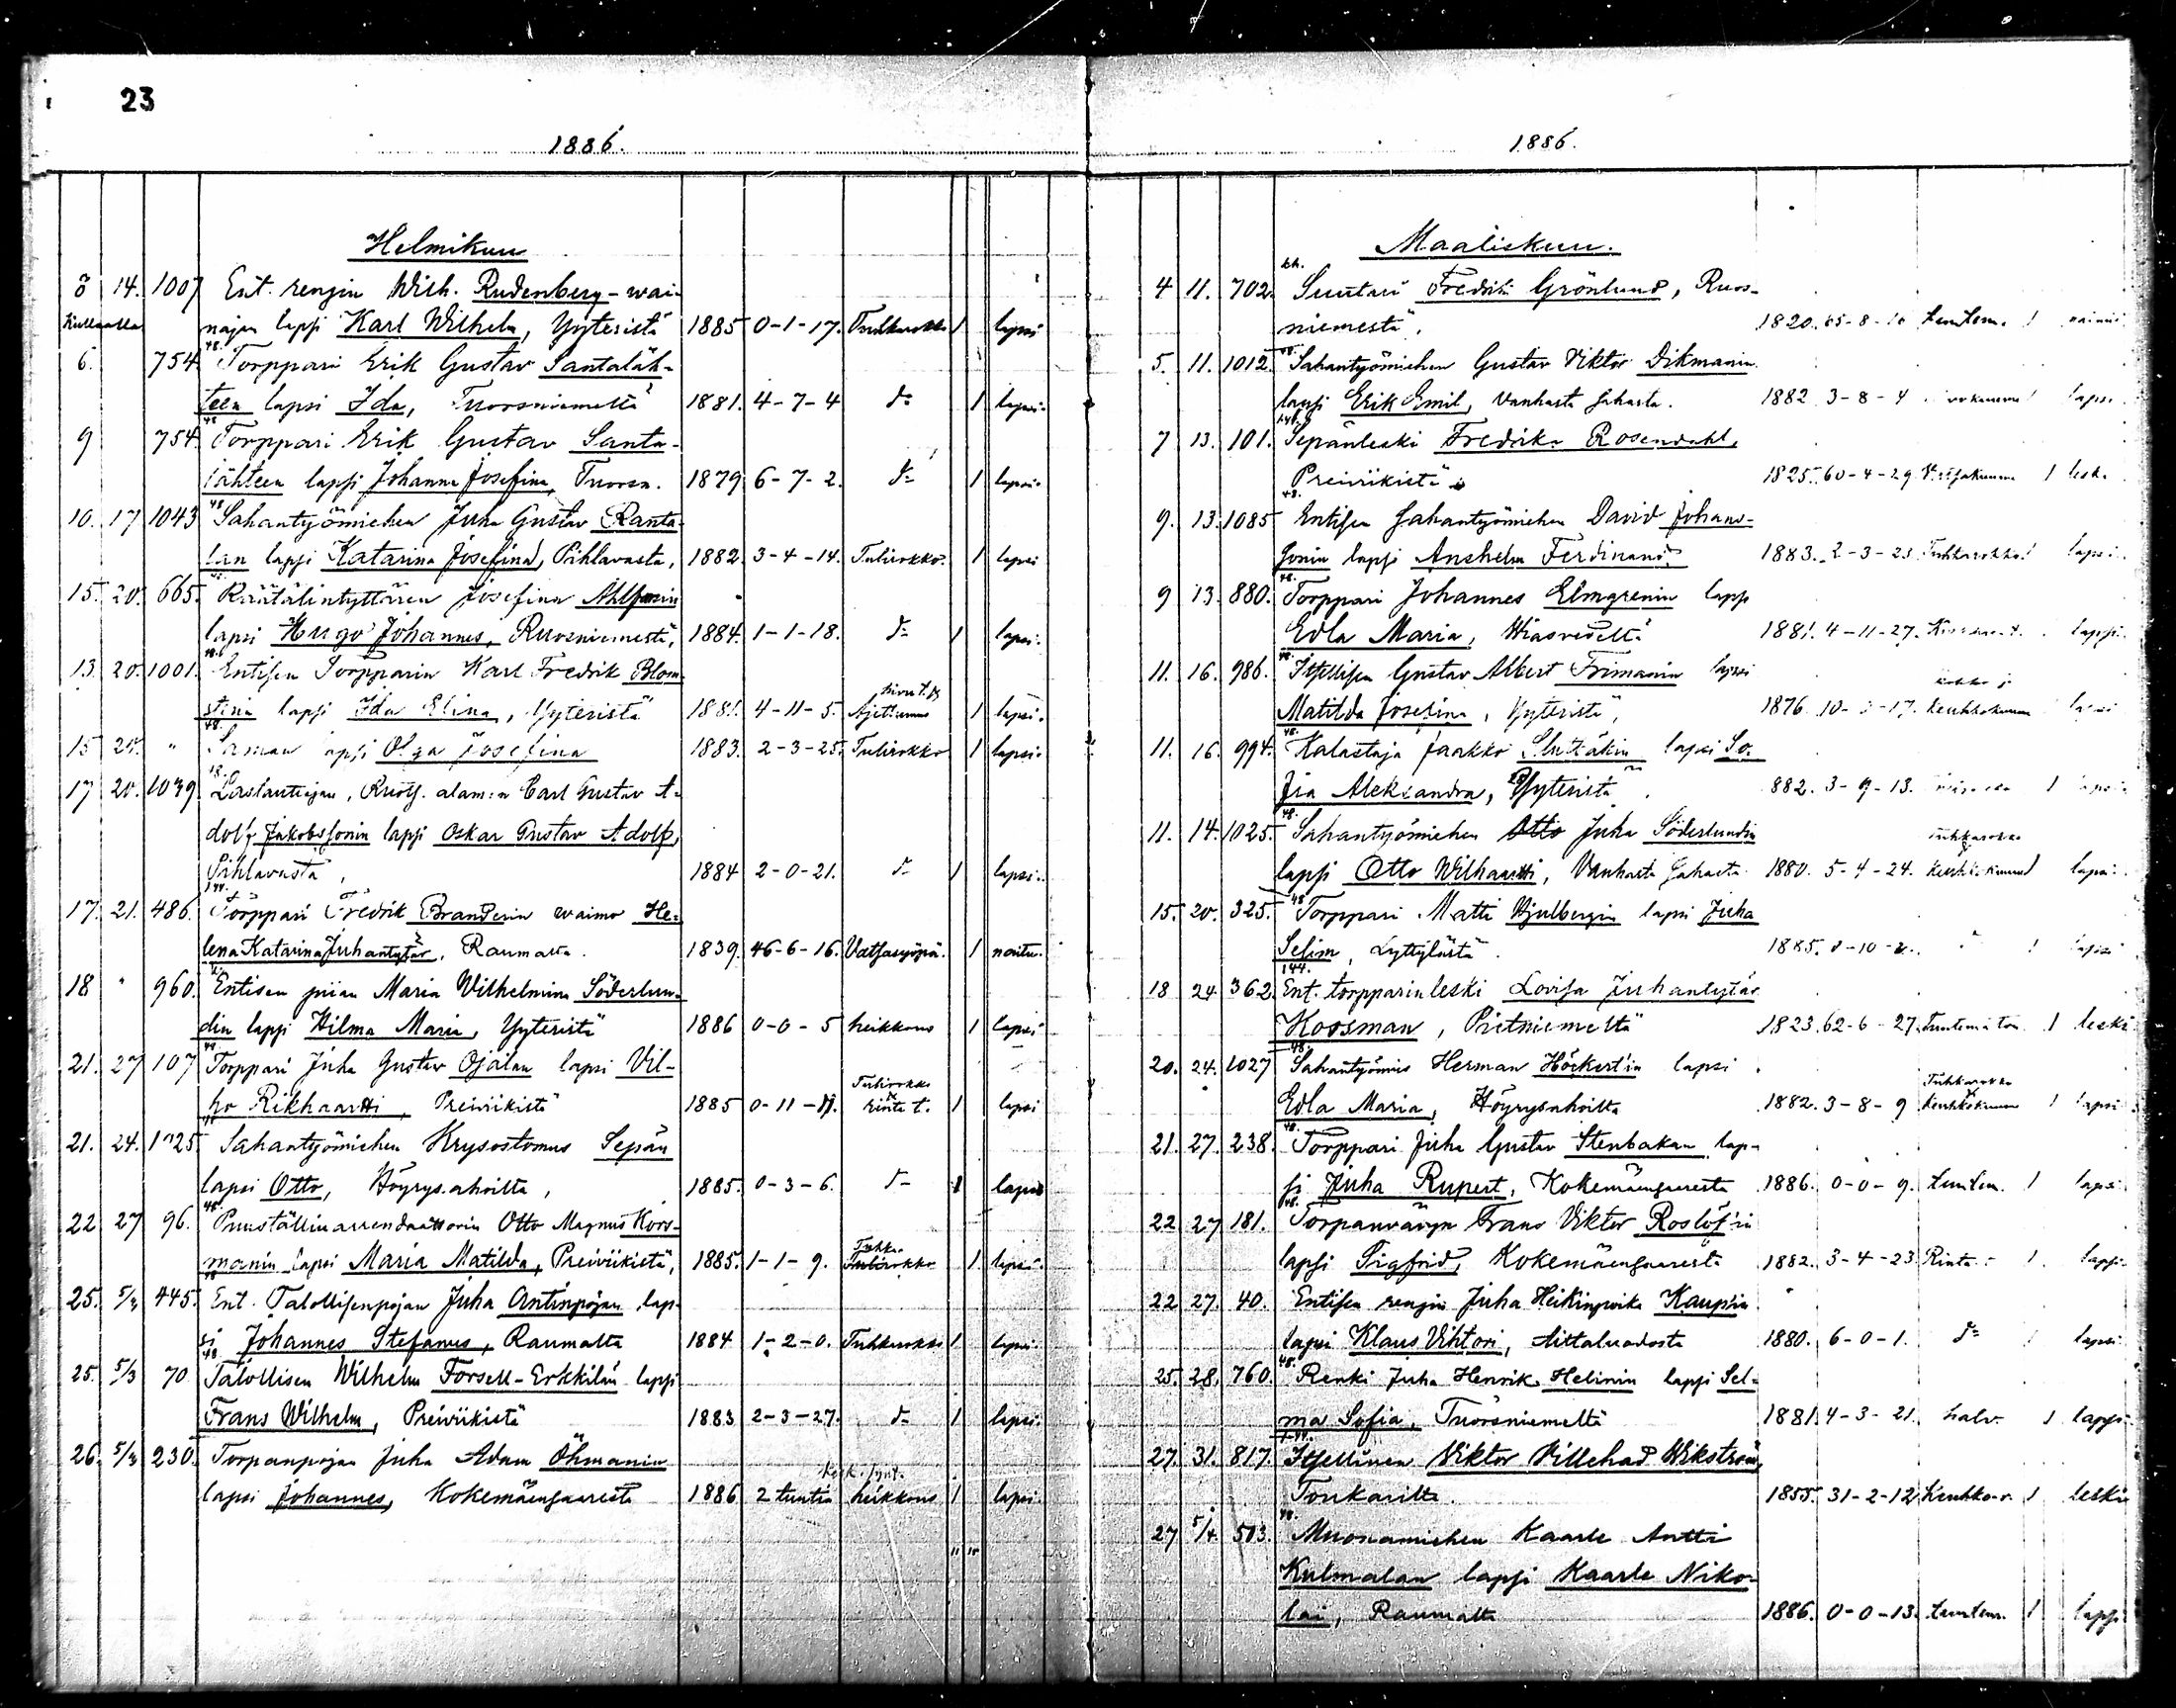 23
1886.
Helmikuu
8 14. 1007 Ent. rengin Wilh. Rudenberg-wai-
najan lapsi Karl Wilhelm, Yyteristä 1885 0-1-17. Tuhkarokko 1 lapsi
6. 754. Torppari Erik Gustav Santaläh-
teen lapsi Ida, Tuorsniemeltä 1881. 4-7-4 do 1 lapsi.
9 754. Torppari Erik Gustav Santa-
lähteen lapsi Johanna Josefina, Tuorsn. 1879 6-7-2. do 1 lapsi.
10. 17 1043 Sahantyömiehen Juha Gustav Ranta-
lan lapsi Katarina Josefina, Pihlavasta, 1882. 3-4-14. Tulirokko. 1 lapsi
15. 20. 665. Räätälintyttären Josefina
lapsi Hugo Johannes, Ruosniemestä, 1884. 1-1-18. do 1 lapsi.
13. 20. 1001. Entisen Torpparin Karl Fredrik Blom-
stina lapsi Ida Elina, Yyteristä 1881. 4-11-5. 1 lapsi.
15 20. " Saman lapsi Olga Josefina 1883. 2-3-25. Tulirokko 1 lapsi.
17 20. 1039 Carl Gustav A-
dolf Jakobssonin lapsi Oskar Gustav Adolf,
Pihlavasta, 1884 2-0-21. do 1 lapsi.
17. 21. 486. Torppari Fredrik Branderin waimo He-
lena Katarina Juhantytär, Raumalta. 1839. 46-6-16. Vatsasyöpä. 1 naitu.
18 " 960. Entisen piian Maria Wilhelmina Söderlun-
din lapsi Hilma Maria, Yyteristä 1886 0-0-5 heikkous 1 lapsi
21. 27 107 Torppari Juha Gustav Ojalan lapsi Vil-
ho Rikhartti, Preiviikistä 1885 0-11-11. Tulirokko rinta t. 1 lapsi
21. 24. 1025 Sahantyömiehen Krysostomus Sepän
lapsi Otto, Höyrysahoilta, 1885. 0-3-6. do 1 lapsi
22 27 96. Puuställinarrendaattorin Otto Magnus Kors-
manin lapsi Maria Matilda, Preiviikistä, 1885. 1-1-9. Tuhka- Tulirokko 1 lapsi
25. 5/3 445. Ent. Talollisenpojan Juha Antinpojan lap-
si Johannes Stefanus, Raumalta 1884 1-2-0. Tuhkarokko 1 lapsi.
25. 5/3 70 Talollisen Wilhelm Forsell-Erkkilän lapsi
Frans Wilhelm, Preiviikistä 1883 2-3-27. do 1 lapsi.
26. 5/3 230. Torpanpojan Juha Adam Öhmanin
lapsi Johannes, Kokemäensaaresta 1886 2 tuntia kesk. synt. heikkous 1 lapsi.
1886.
Maaliskuu.
4 11. 702. Suutari Fredrik Grönlund, Ruos-
niemestä, 1820. 65-8-10 tuntem. 1 nainut
5. 11. 1012. Sahantyömiehen Gustav Viktor Dikmanin
lapsi Erik Emil, Vanhasta Sahasta. 1882 3-8-4 lapsi
7 13. 101. Sepänleski Fredrika Rosendahl,
Preiviikistä 1825. 60-4-29. 1 leski
9. 13. 1085 Entisen Sahantyömiehen David Johans-
sonin lapsi Anshelm Ferdinand. 1883. 2-3-23 Tuhkarokko 1 lapsi.
9 13. 880. Torppari Johannes Elmgrenin lapsi
Edla Maria, Wiasvedeltä 1881. 4-11-27. lapsi
11. 16. 986. Itsellisen Gustav Albert Frimanin lapsi
Matilda Josefina, Yyteristä, 1876. 10-3-17. Keuhkokuume lapsi
11. 16. 994. Kalastaja Jaakko lapsi So-
fia Aleksandra, Yyteristä. 882. 3-9-13. 1 lapsi
11. 14. 1025. Sahantyömiehen Otto Juha Söderlundin
lapsi Otto Wilhartti, Vanhasta Sahasta 1880. 5-4-24. tuhkarokko keuhkokuume 1 lapsi.
15. 20. 325. Torppari Matti Hjulbergin lapsi Juha
Selim, Lyttylästä. 1885. 0-10-2. " 1 lapsi
18 24 362. Ent. torpparinleski Lovisa Juhantytär
Koosman, Pietniemeltä 1823. 62-6-27. Tuntematon 1 leski
20. 24. 1027 Sahantyömies Herman Höckert'in lapsi
Edla Maria, Höyrysahoilta 1882. 3-8-9 Tuhkarokko keuhkokuume 1 lapsi
21. 27. 238. Torppari Juha Gustav Stenbakan lap-
si Juha Rupert, Kokemäensaaresta 1886. 0-0-9. tuntem. 1 lapsi
22 27 181. Torpanvävyn Frans Viktor Roslöf'in
lapsi Sigfrid, Kokemäensaaresta 1882. 3-4-23 Rinta- 1 lapsi.
22 27. 40. Entisen rengin Juha Heikinpoika Kaupin
lapsi Klaus Vihtori, Aittaluodosta 1880. 6-0-1. do 1 lapsi
25. 28. 760. Renki Juha Henrik Helinin lapsi Sel-
ma Sofia, Tuorsniemeltä 1881. 4-3-21. halv. 1 lapsi.
27. 31. 817. Itsellinen Viktor Villehad Wikström,
Toukarilta. 1855. 31-2-12 1 leski
27 5/4. 503. Muonamiehen Kaarle Antti
Kulmalan lapsi Kaarle Niko-
lai, Raumalta 1886. 0-0-13. tuntem. 1 lapsi